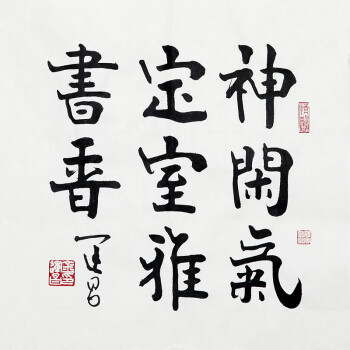 神閑氣
定室雅
書香